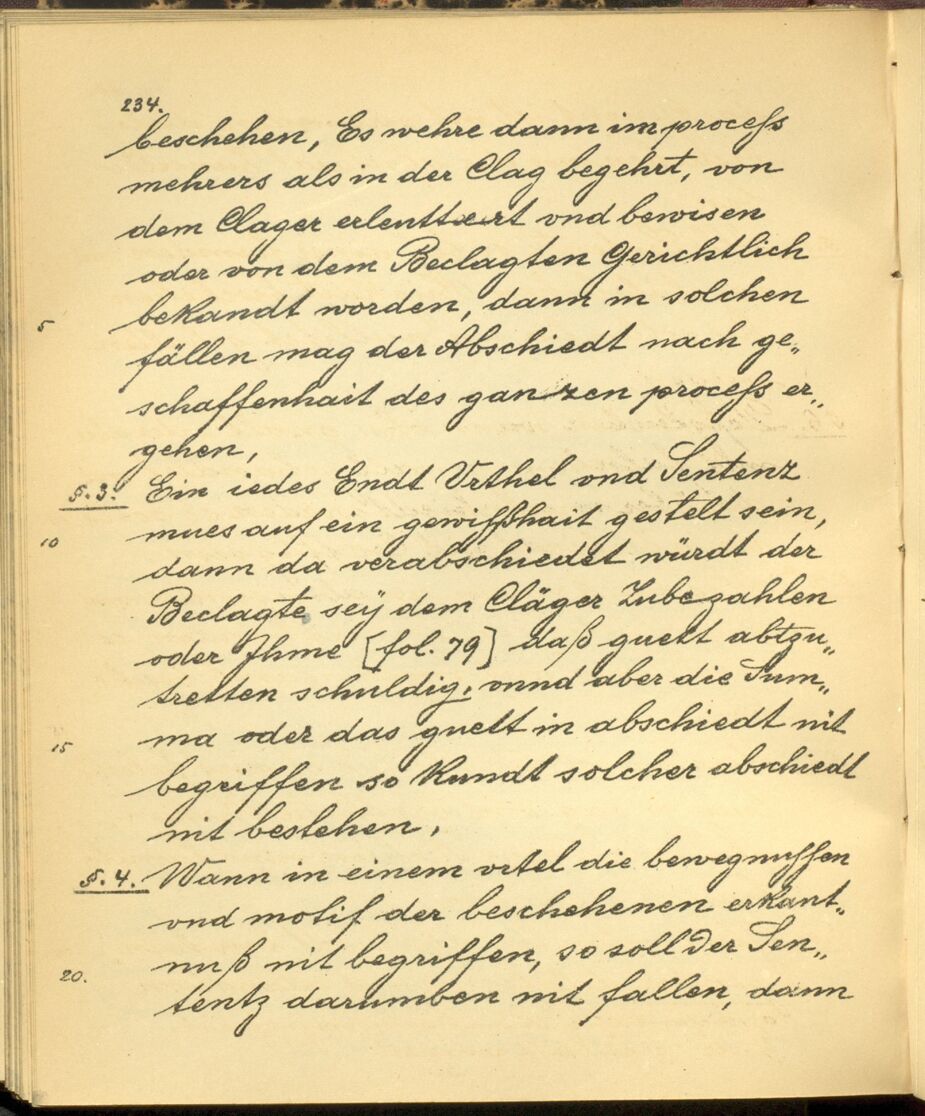 234.
beschehen, Es wehre dann im process
mehrers als in der Clag begehrt, von
dem Clager erleuttert vnd bewisen
oder von dem Beclagten Gerichtlich
5 bekandt worden, dann in solchen
fällen mag der Abschiedt nach ge„
schaffenhait des ganzen process er„
gehen,
§. 3. Ein iedes Endt Vrthel vnd Sentenz
10 mues auf ein gewißhait gestelt sein,
dann da verabschiedet würdt der
Beclagte seÿ dem Cläger Zubezahlen
oder Ihme [fol. 79] daß guett abtzu„
tretten schuldig, vnnd aber die Sum„
15 ma oder das guett in abschiedt nit
begriffen so kundt solcher abschiedt
nit bestehen,
§. 4. Wann in einem vrtel die bewegnussen
vnd motif der beschehenen erkant„
20. nuß nit begriffen, so soll der Sen„
tentz darumben nit fallen, dann